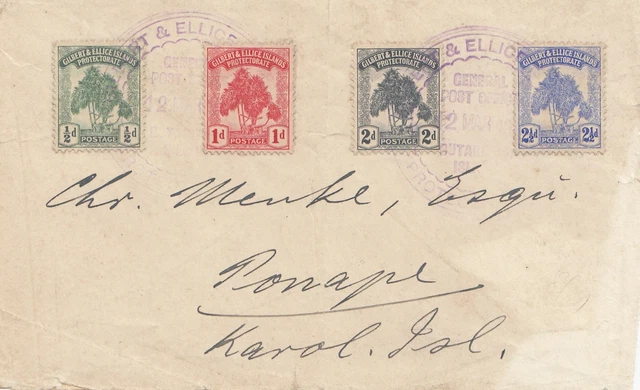 GILBERT & ELLICE ISLANDS
PROTECTORATE
½d ½d
POSTAGE
GILBERT & ELLICE ISLANDS
PROTECTORATE
1d 1d
POSTAGE
GILBERT & ELLICE ISLANDS
PROTECTORATE
2d 2d
POSTAGE
GILBERT & ELLICE ISLANDS
PROTECTORATE
2½d 2½d
POSTAGE
& ELLICE
GENERAL
POST
& ELLIC
GENERAL
POST
2 MAR
Chr. Menke, Esqu.
Ponape
Karol. Isl.